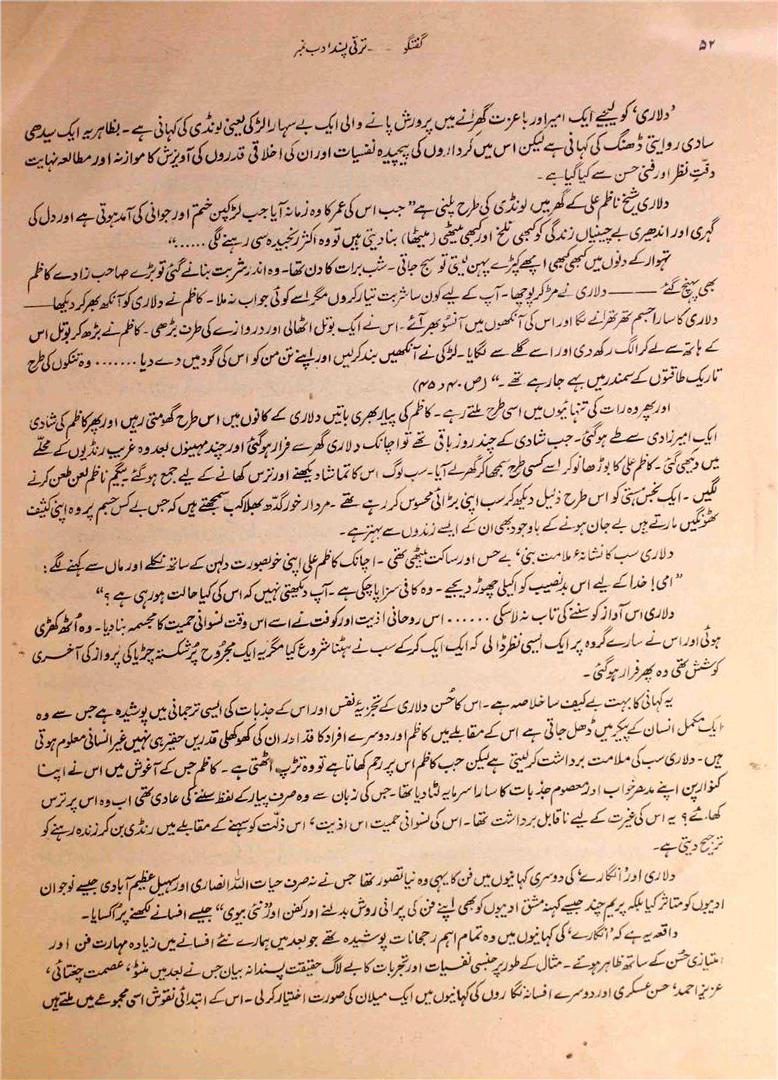 ۵۲
گفتگو -- ترقی پسند ادب نمبر
'دلاری' کو لیجیے ایک امیر اور باعزت گھرانے میں پرورش پانے والی ایک بے سہارا لڑکی یعنی لونڈی کی کہانی ہے۔ بظاہر یہ ایک سیدھی
سادی روایتی ڈھنگ کی کہانی ہے لیکن اس میں کرداروں کی پیچیدہ نفسیات اور ان کی اخلاقی قدروں کی آویزش کا موازنہ اور مطالعہ نہایت
دقّتِ نظر اور فنی حسن سے کیا گیا ہے۔
دلاری شیخ ناظم علی کے گھر میں لونڈی کی طرح پلتی ہے "جب اس کی عمر کا وہ زمانہ آیا جب لڑکپن ختم اور جوانی کی آمد ہوتی ہے اور دل کی
گہری اور اندھیری بے چینیاں زندگی کو کبھی تلخ اور کبھی میٹھی (میٹھا) بنا دیتی ہیں تو وہ اکثر رنجیدہ سی رہنے لگی ....."
تہوار کے دنوں میں کبھی کبھی اچھے کپڑے پہن لیتی تو سج جاتی۔ شب برات کا دن تھا۔ وہ اندر شربت بنانے گئی تو بڑے صاحب زادے کاظم
بھی پہنچ گئے —— دلاری نے مڑ کر پوچھا۔ آپ کے لیے کون سا شربت تیار کروں مگر اسے کوئی جواب نہ ملا۔ کاظم نے دلاری کو آنکھ بھر کر دیکھا ——
دلاری کا سارا جسم تھرتھرانے لگا اور اس کی آنکھوں میں آنسو بھر آئے۔ اس نے ایک بوتل اٹھالی اور دروازے کی طرف بڑھی۔ کاظم نے بڑھ کر بوتل اس
کے ہاتھ سے لے کر الگ رکھ دی اور اسے گلے سے لگایا۔ لڑکی نے آنکھیں بند کرلیں اور اپنے تن من کو اس کی گود میں دے دیا ....... وہ تنکوں کی طرح
تاریک طاقتوں کے سمندر میں بہے جارہے تھے۔" (ص ۴۰ و ۴۵)
اور پھر وہ رات کی تنہائیوں میں اسی طرح ملتے رہے۔ کاظم کی پیار بھری باتیں دلاری کے کانوں میں اس طرح گھومتی رہیں اور پھر کاظم کی شادی
ایک امیر زادی سے طے ہوگئی۔ جب شادی کے چند روز باقی تھے تو اچانک دلاری گھر سے فرار ہوگئی اور چند مہینوں بعد وہ غریب رنڈیوں کے محلّے
میں دیکھی گئی۔ کاظم علی کا بوڑھا نوکر اسے کسی طرح سمجھا کر گھر لے آیا۔ سب لوگ اس کا تماشا دیکھنے اور ترس کھانے کے لیے جمع ہوگئے بیگم ناظم لعن طعن کرنے
لگیں۔ ایک نجس ہستی کو اس طرح ذلیل دیکھ کر سب اپنی بڑائی محسوس کر رہے تھے۔ مردار خور گدھ بھلا کب سمجھتے ہیں کہ جس بے کس جسم پر وہ اپنی کثیف
ٹھونگیں مارتے ہیں بے جان ہونے کے باوجود بھی ان کے ایسے زندوں سے بہتر ہے۔
دلاری سب کا نشانۂ ملامت بنی، بے حس اور ساکت بیٹھی تھی۔ اچانک کاظم علی اپنی خوبصورت دلہن کے ساتھ نکلے اور ماں سے کہنے لگے:
"امی! خدا کے لیے اس بدنصیب کو اکیلی چھوڑ دیجیے۔ وہ کافی سزا پاچکی ہے۔ آپ دیکھتی نہیں کہ اس کی کیا حالت ہو رہی ہے؟"
دلاری اس آواز کو سننے کی تاب نہ لاسکی ...... اس روحانی اذیت اور کوفت نے اسے اس وقت نسوانی حمیت کا مجسمہ بنادیا۔ وہ اُٹھ کھڑی
ہوئی اور اس نے سارے گروہ پر ایک ایسی نظر ڈالی کہ ایک ایک کرکے سب نے ہٹنا شروع کیا مگر یہ ایک مجروح پر شکستہ چڑیا کی پرواز کی آخری
کوشش تھی وہ پھر فرار ہوگئی۔
یہ کہانی کا بہت بے کیف سا خلاصہ ہے۔ اس کا حُسن دلاری کے تجزیۂ نفس اور اس کے جذبات کی ایسی ترجمانی میں پوشیدہ ہے جس سے وہ
ایک مکمل انسان کے پیکر میں ڈھل جاتی ہے اس کے مقابلے میں کاظم اور دوسرے افراد کا قد اور ان کی کھوکھلی قدریں حقیر ہی نہیں غیر انسانی معلوم ہوتی
ہیں۔ دلاری سب کی ملامت برداشت کرلیتی ہے لیکن جب کاظم اس پر رحم کھاتا ہے تو وہ تڑپ اٹھتی ہے۔ کاظم جس کے آغوش میں اس نے اپنا
کنوارپن اپنے مدھر خواب اور معصوم جذبات کا سارا سرمایہ لٹا دیا تھا۔ جس کی زبان سے وہ صرف پیار کے لفظ سننے کی عادی تھی اب وہ اس پر ترس
کھائے؟ یہ اس کی غیرت کے لیے ناقابل برداشت تھا۔ اس کی نسوانی حمیت اس اذیت، اس ذلّت کو سہنے کے مقابلے میں رنڈی بن کر زندہ رہنے کو
ترجیح دیتی ہے۔
دلاری اور 'انگارے' کی دوسری کہانیوں میں فن کا یہی وہ نیا تصور تھا جس نے نہ صرف حیات اللہ انصاری اور سہیل عظیم آبادی جیسے نوجوان
ادیبوں کو متاثر کیا بلکہ پریم چند جیسے کہنہ مشق ادیبوں کو بھی اپنے فن کی پرانی روش بدلنے اور کفن اور "نئی بیوی" جیسے افسانے لکھنے پر اُکسایا۔
واقعہ یہ ہے کہ 'انگارے' کی کہانیوں میں وہ تمام اہم رجحانات پوشیدہ تھے جو بعد میں ہمارے نئے افسانے میں زیادہ مہارت فن اور
امتیازی حُسن کے ساتھ ظاہر ہوئے۔ مثال کے طور پر جنسی نفسیات اور تجربات کا بے لاگ حقیقت پسندانہ بیان جس نے بعد میں منٹو، عصمت چغتائی،
عزیز احمد، حسن عسکری اور دوسرے افسانہ نگاروں کی کہانیوں میں ایک میلان کی صورت اختیار کرلی۔ اس کے ابتدائی نقوش اسی مجموعے میں ملتے ہیں